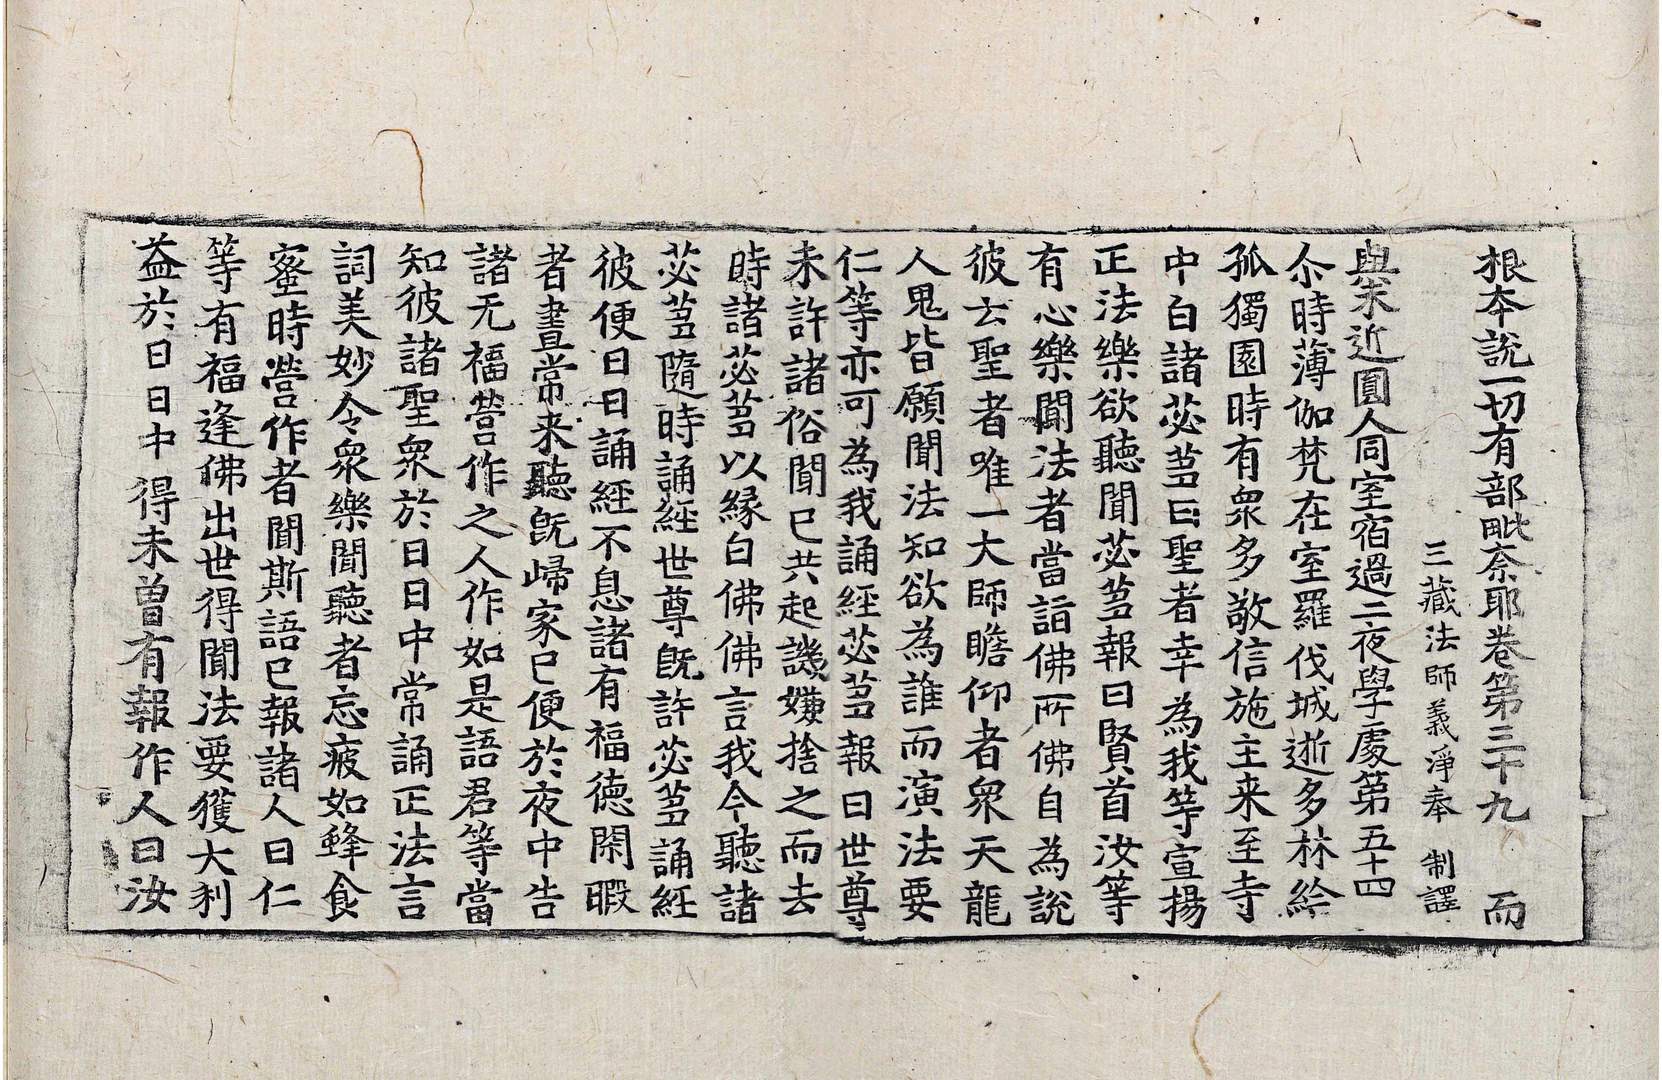 根本說一切有部毗奈耶卷第三十九 而
三藏法師義淨奉 制譯
與未近圓人同室宿過二夜學處第五十四
尒時薄伽梵在室羅伐城逝多林給
孤獨園時有衆多敬信施主来至寺
中白諸苾芻曰聖者幸為我等宣揚
正法樂欲聽聞苾芻報曰賢首汝等
有心樂聞法者當詣佛所佛自為說
彼云聖者唯一大師瞻仰者衆天龍
人鬼皆願聞法知欲為誰而演法要
仁等亦可為我誦經苾芻報曰世尊
未許諸俗聞已共起譏嫌捨之而去
時諸苾芻以緣白佛佛言我今聽諸
苾芻隨時誦經世尊旣許苾芻誦經
彼便日日誦經不息諸有福德閑暇
者晝常来聽旣歸家已便於夜中告
諸无福營作之人作如是語君等當
知彼諸聖衆於日日中常誦正法言
詞美妙令衆樂聞聽者忘疲如蜂食
蜜時營作者聞斯語已報諸人曰仁
等有福逢佛出世得聞法要獲大利
益於日日中得未曾有報作人曰汝